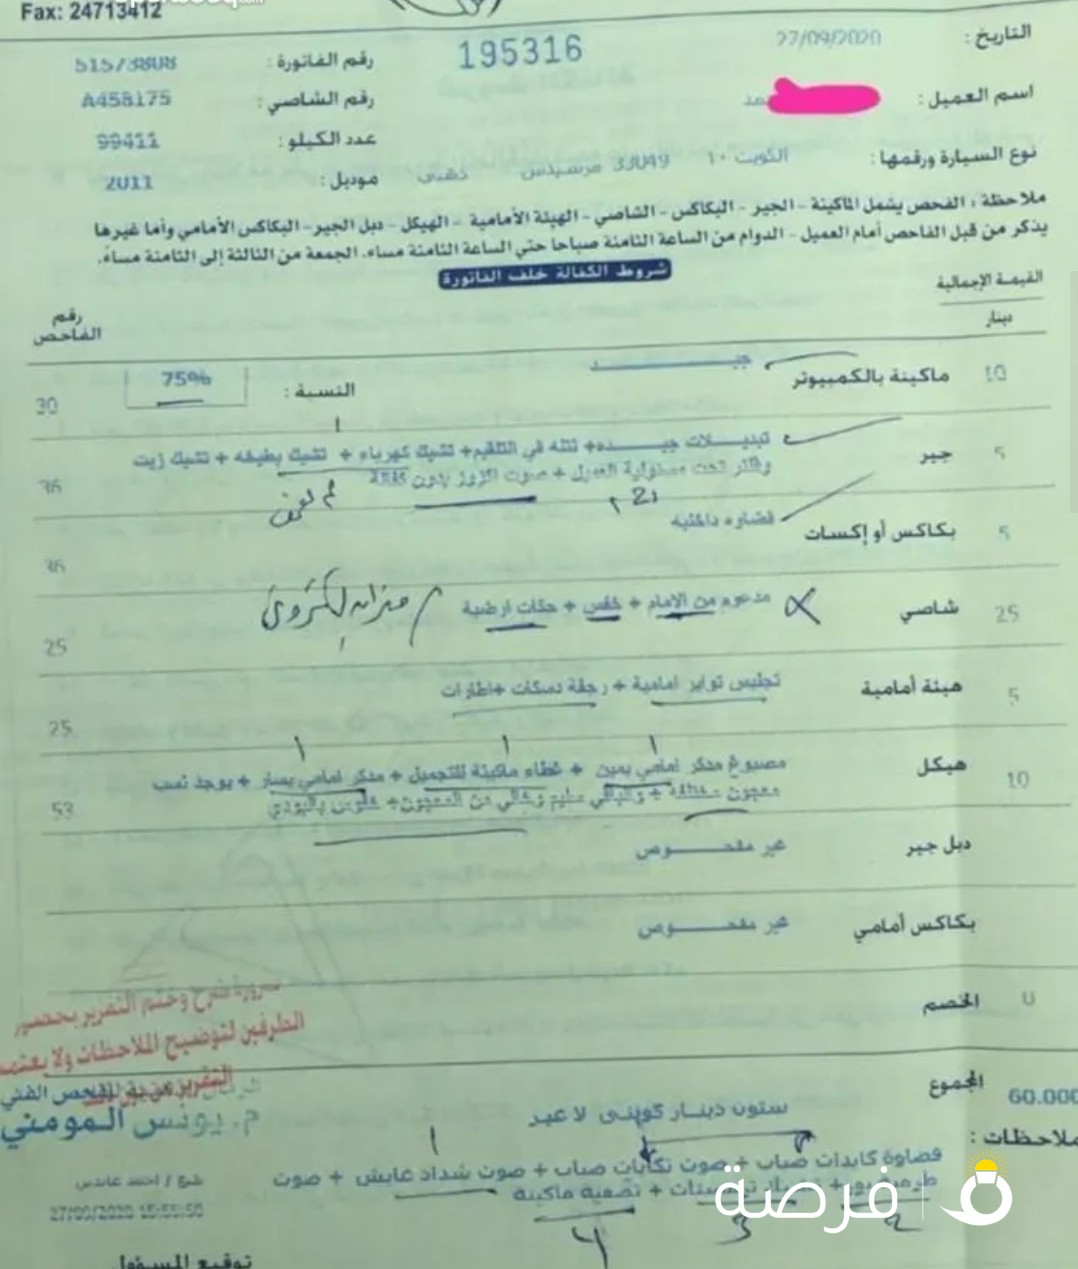 Fax: 24713412
التاريخ : 27/09/2020
195316
رقم الفاتورة : 51573808
اسم العميل :
رقم الشاصي : A458175
عدد الكيلو : 99411
نوع السيارة ورقمها : الكويت ١٠ 33049 مرسيدس ذهبى
موديل : 2011
ملاحظة ، الفحص يشمل الماكينة - الجير - البكاكس - الشاصي - الهيئة الأمامية - الهيكل - دبل الجير - البكاكس الأمامي وأما غيرها
يذكر من قبل الفاحص أمام العميل - الدوام من الساعة الثامنة صباحا حتي الساعة الثامنة مساء. الجمعة من الثالثة إلى الثامنة مساءً.
شروط الكفالة خلف الفاتورة
القيمة الإجمالية
دينار
رقم
الفاحص
10 ماكينة بالكمبيوتر جيـــد النسبة : 75% 30
5 جير تبديـــلات جيـــده+ نتله في التلقيم+ تشيك كهرباء + تشيك بطيخه + تشيك زيت 36
وفلتر تحت مسئولية العميل + صوت اكزوز بدون كفالة
5 بكاكس أو إكسات قضاره داخليه 36
25 شاصي مدعوم من الامام + خفس + حكات ارضية 25
5 هيئة أمامية تجليس تواير امامية + رجفة دسكات +اطارات 25
10 هيكل مصبوغ مدكر امامي يمين + غطاء ماكينة للتجميل + مدكر امامي يسار + يوجد نسب 53
معجون مختلفة + والباقي سليم وخالي من المعجون+
دبل جير غير مفحـــوص
بكاكس أمامي غير مفحـــوص
0 الخصم
ضرورة شرح وختم التقرير بحضور
الطرفين لتوضيح الملاحظات ولا يعتمد
التقرير
60.000 المجموع
ستون دينار كويتى لا غير
الفحص الفني
م. يونس المومني
ملاحظات :
قضاوة كابدات صباب + صوت تكايات صباب + صوت شداد عايش + صوت
+ تصفية ماكينة
27/09/2020 15:55:50
توقيع المسؤول
فرصة